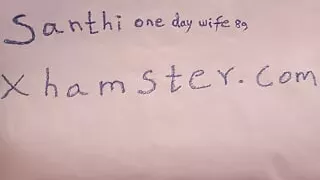 Santhi one day wife 89
Xhamster.com